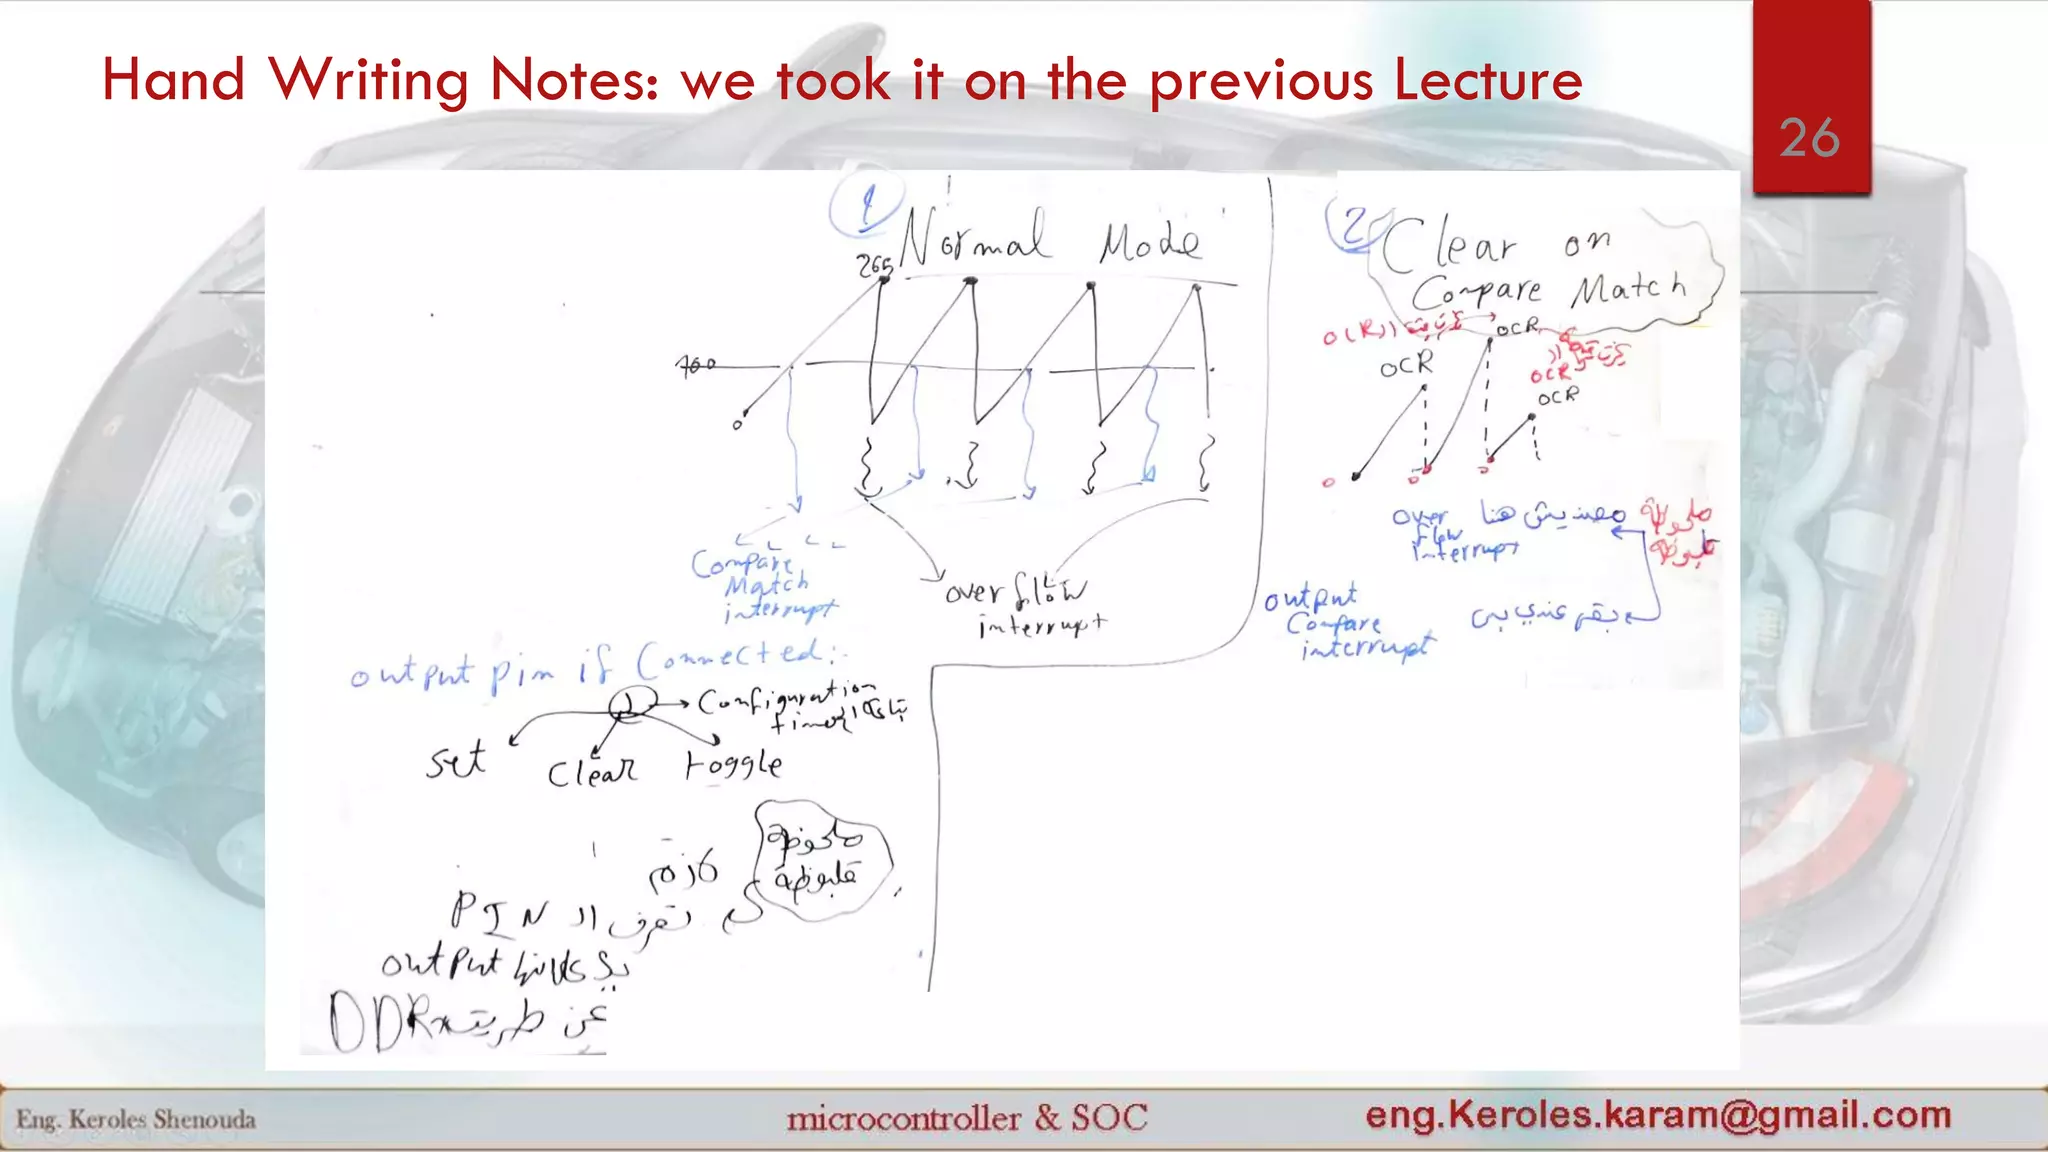 Hand Writing Notes: we took it on the previous Lecture
26
1
Normal Mode
265
100
0
Compare
Match
interrupt
over flow
interrupt
output pin if Connected:-
Configuration
timer ال بتاعة
set
Clear
toggle
ملحوظة
لازم
PIN تعرف ال
output
DDRx عن طريق
2
Clear on
Compare Match
OCR
OCR
OCR
OCR
over
flow
interrupt
معنديش هنا
ملحوظة
output
Compare
interrupt
بقى عندي بس
Eng. Keroles Shenouda
microcontroller & SOC
eng.Keroles.karam@gmail.com